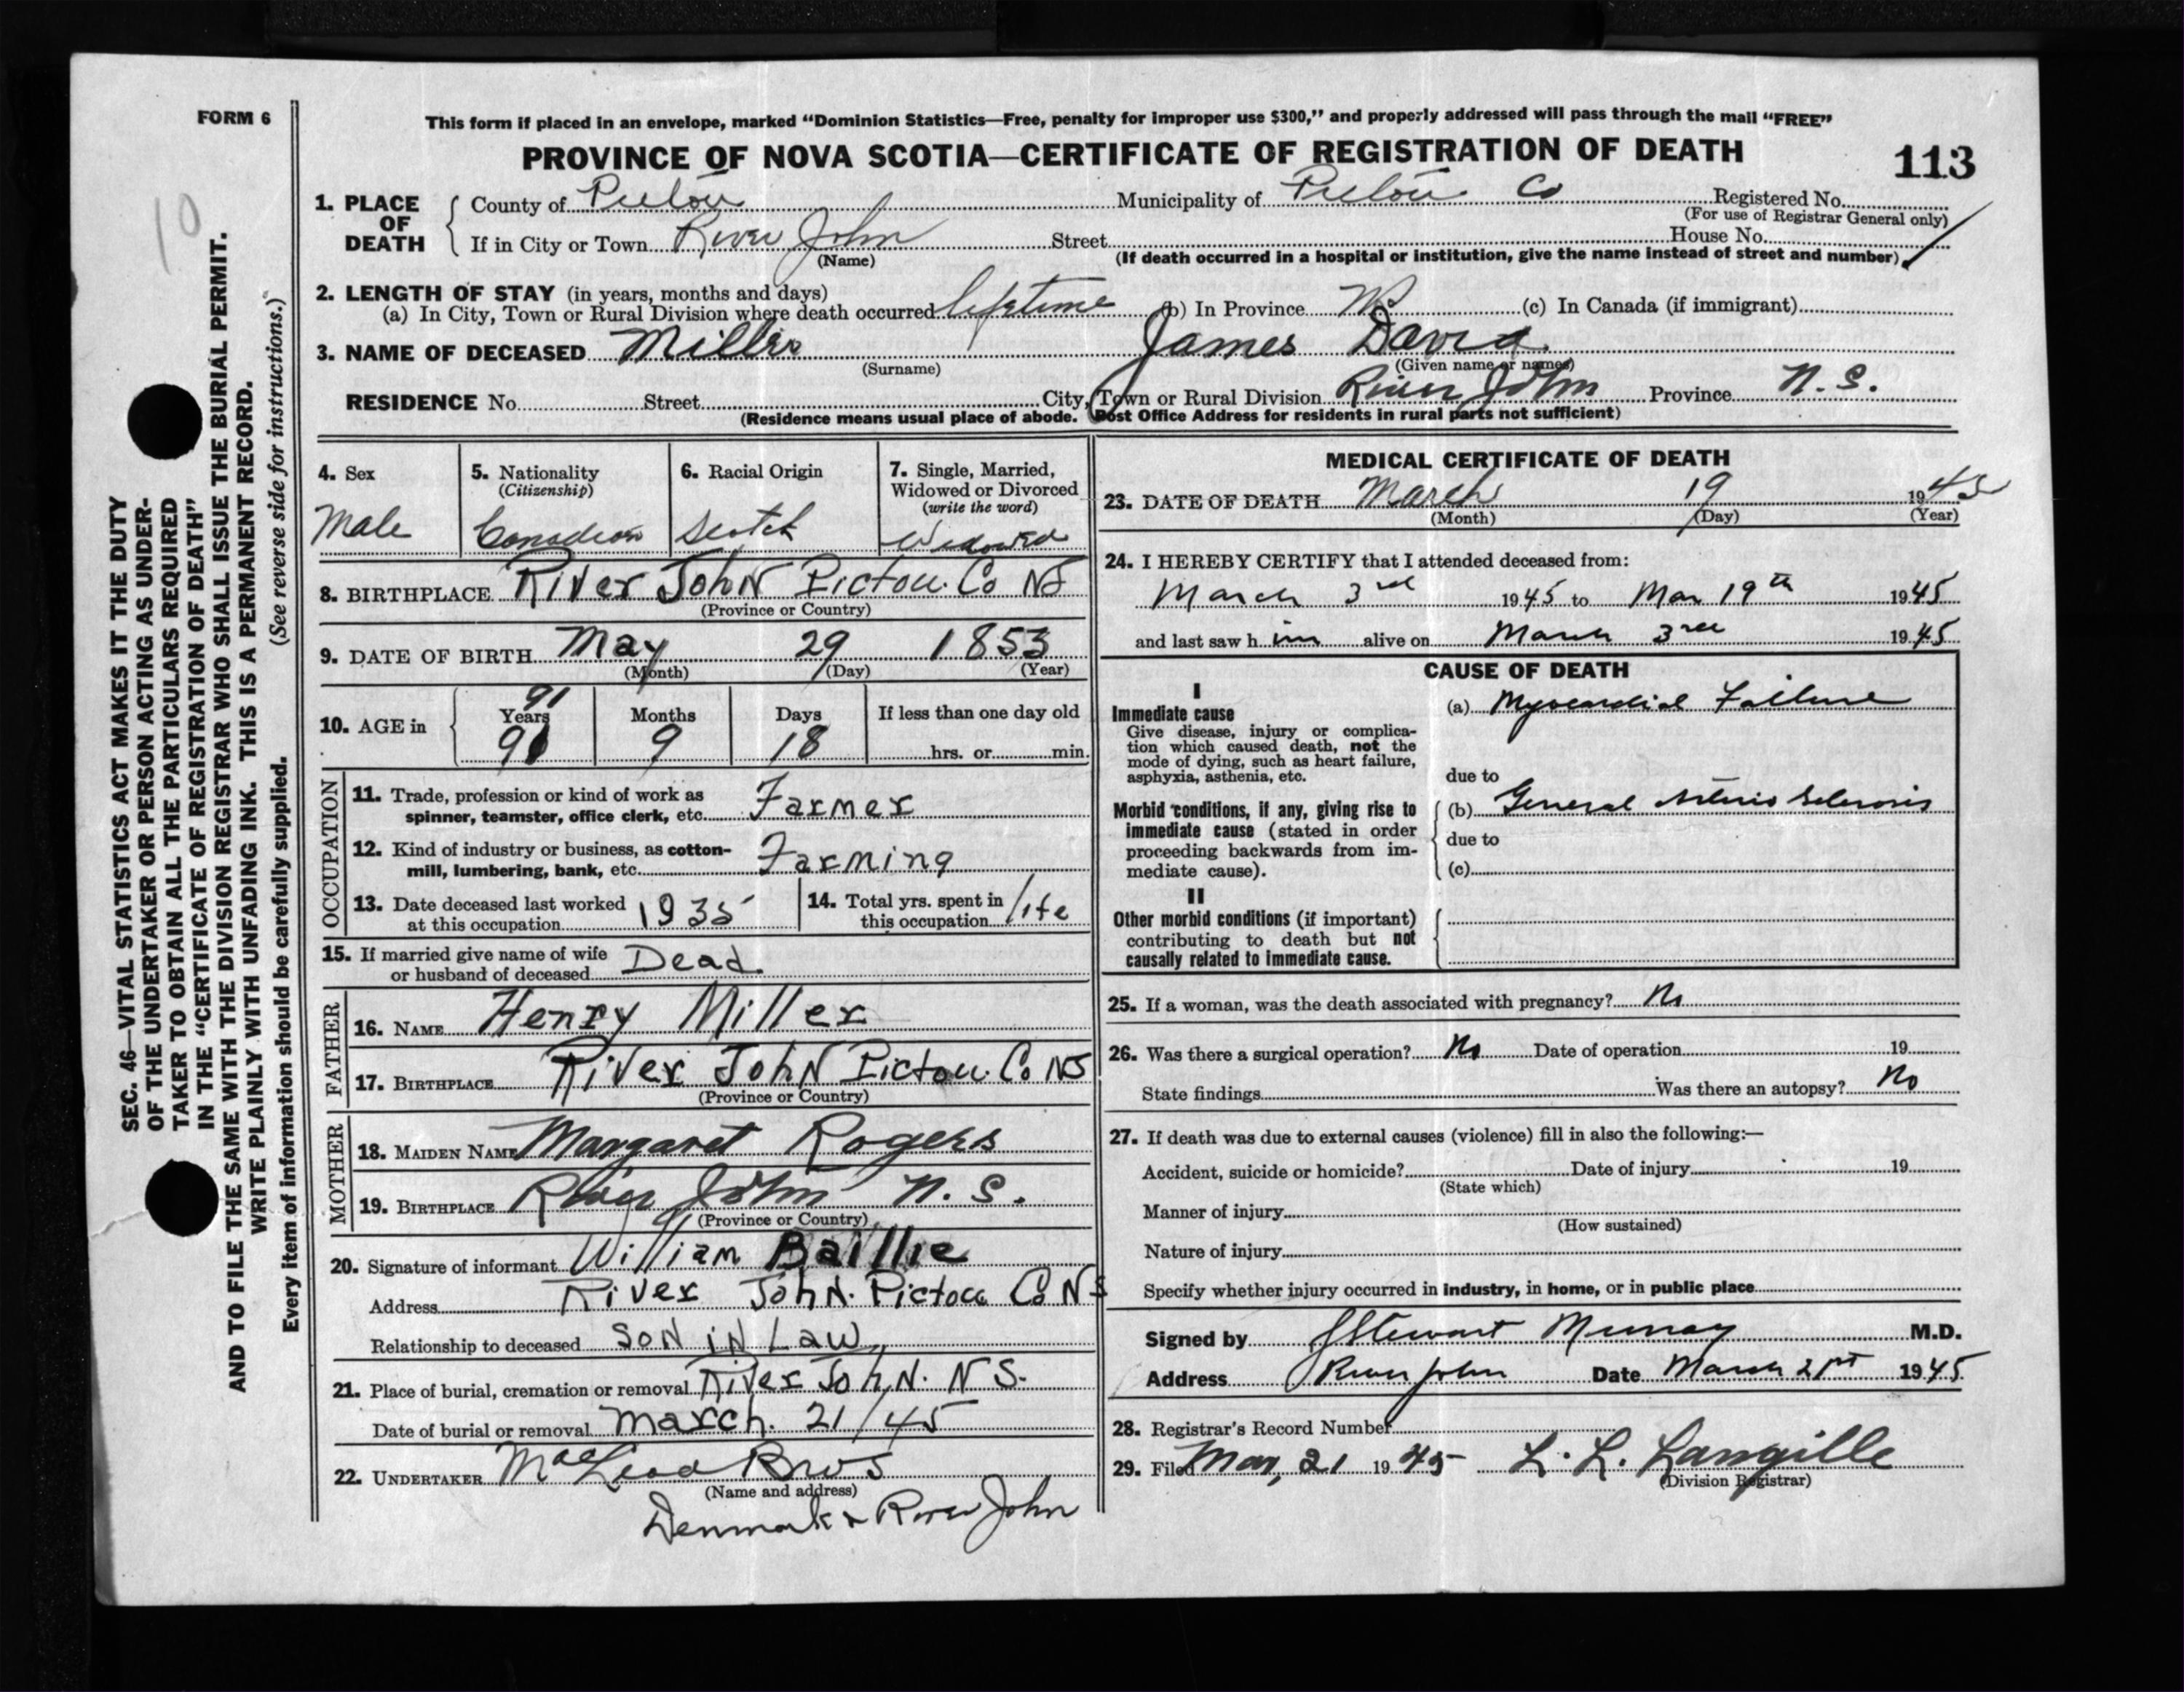 FORM 6
This form if placed in an envelope, marked “Dominion Statistics—Free, penalty for improper use $300,” and properly addressed will pass through the mail “FREE”
PROVINCE OF NOVA SCOTIA—CERTIFICATE OF REGISTRATION OF DEATH
113
10
1. PLACE OF DEATH
County of Pictou Municipality of Pictou Co Registered No.
(For use of Registrar General only)
If in City or Town River John Street House No.
(Name) (If death occurred in a hospital or institution, give the name instead of street and number)
2. LENGTH OF STAY (in years, months and days)
(a) In City, Town or Rural Division where death occurred lifetime (b) In Province (c) In Canada (if immigrant)
3. NAME OF DECEASED Miller James David
(Surname) (Given name or names)
RESIDENCE No. Street City, Town or Rural Division River John Province N.S.
(Residence means usual place of abode. Post Office Address for residents in rural parts not sufficient)
4. Sex
Male
5. Nationality
(Citizenship)
Canadian
6. Racial Origin
Scotch
7. Single, Married,
Widowed or Divorced
(write the word)
Widowed
8. BIRTHPLACE River John Pictou Co NS
(Province or Country)
9. DATE OF BIRTH May 29 1853
(Month) (Day) (Year)
91
10. AGE in Years Months Days If less than one day old
91 9 18 hrs. or min.
OCCUPATION
11. Trade, profession or kind of work as
spinner, teamster, office clerk, etc. Farmer
12. Kind of industry or business, as cotton-
mill, lumbering, bank, etc. Farming
13. Date deceased last worked
at this occupation 1935
14. Total yrs. spent in
this occupation life
15. If married give name of wife
or husband of deceased Dead
FATHER
16. NAME Henry Miller
17. BIRTHPLACE River John Pictou Co NS
(Province or Country)
MOTHER
18. MAIDEN NAME Margaret Rogers
19. BIRTHPLACE River John N.S.
(Province or Country)
20. Signature of informant William Baillie
Address River John. Pictou Co NS
Relationship to deceased SON IN Law
21. Place of burial, cremation or removal River John. NS.
Date of burial or removal March. 21/45
22. UNDERTAKER MacLeod Bros
(Name and address)
Denmark & River John
MEDICAL CERTIFICATE OF DEATH
23. DATE OF DEATH March 19 1945
(Month) (Day) (Year)
24. I HEREBY CERTIFY that I attended deceased from:
March 3rd 1945 to Mar 19th 1945
and last saw him alive on March 3rd 1945
CAUSE OF DEATH
I
Immediate cause
Give disease, injury or complica-
tion which caused death, not the
mode of dying, such as heart failure,
asphyxia, asthenia, etc.
(a) Myocardial Failure
due to
Morbid conditions, if any, giving rise to
immediate cause (stated in order
proceeding backwards from im-
mediate cause).
(b) General Arterio Sclerosis
due to
(c)
II
Other morbid conditions (if important)
contributing to death but not
causally related to immediate cause.
25. If a woman, was the death associated with pregnancy? No
26. Was there a surgical operation? No Date of operation 19
State findings Was there an autopsy? No
27. If death was due to external causes (violence) fill in also the following:—
Accident, suicide or homicide? Date of injury 19
(State which)
Manner of injury
(How sustained)
Nature of injury
Specify whether injury occurred in industry, in home, or in public place
Signed by J Stewart Murray M.D.
Address River John Date March 21st 1945
28. Registrar's Record Number
29. Filed Mar, 21 1945 L. L. Langille
(Division Registrar)
SEC. 46—VITAL STATISTICS ACT MAKES IT THE DUTY
OF THE UNDERTAKER OR PERSON ACTING AS UNDER-
TAKER TO OBTAIN ALL THE PARTICULARS REQUIRED
IN THE “CERTIFICATE OF REGISTRATION OF DEATH”
AND TO FILE THE SAME WITH THE DIVISION REGISTRAR WHO SHALL ISSUE THE BURIAL PERMIT.
WRITE PLAINLY WITH UNFADING INK. THIS IS A PERMANENT RECORD.
Every item of information should be carefully supplied. (See reverse side for instructions.)